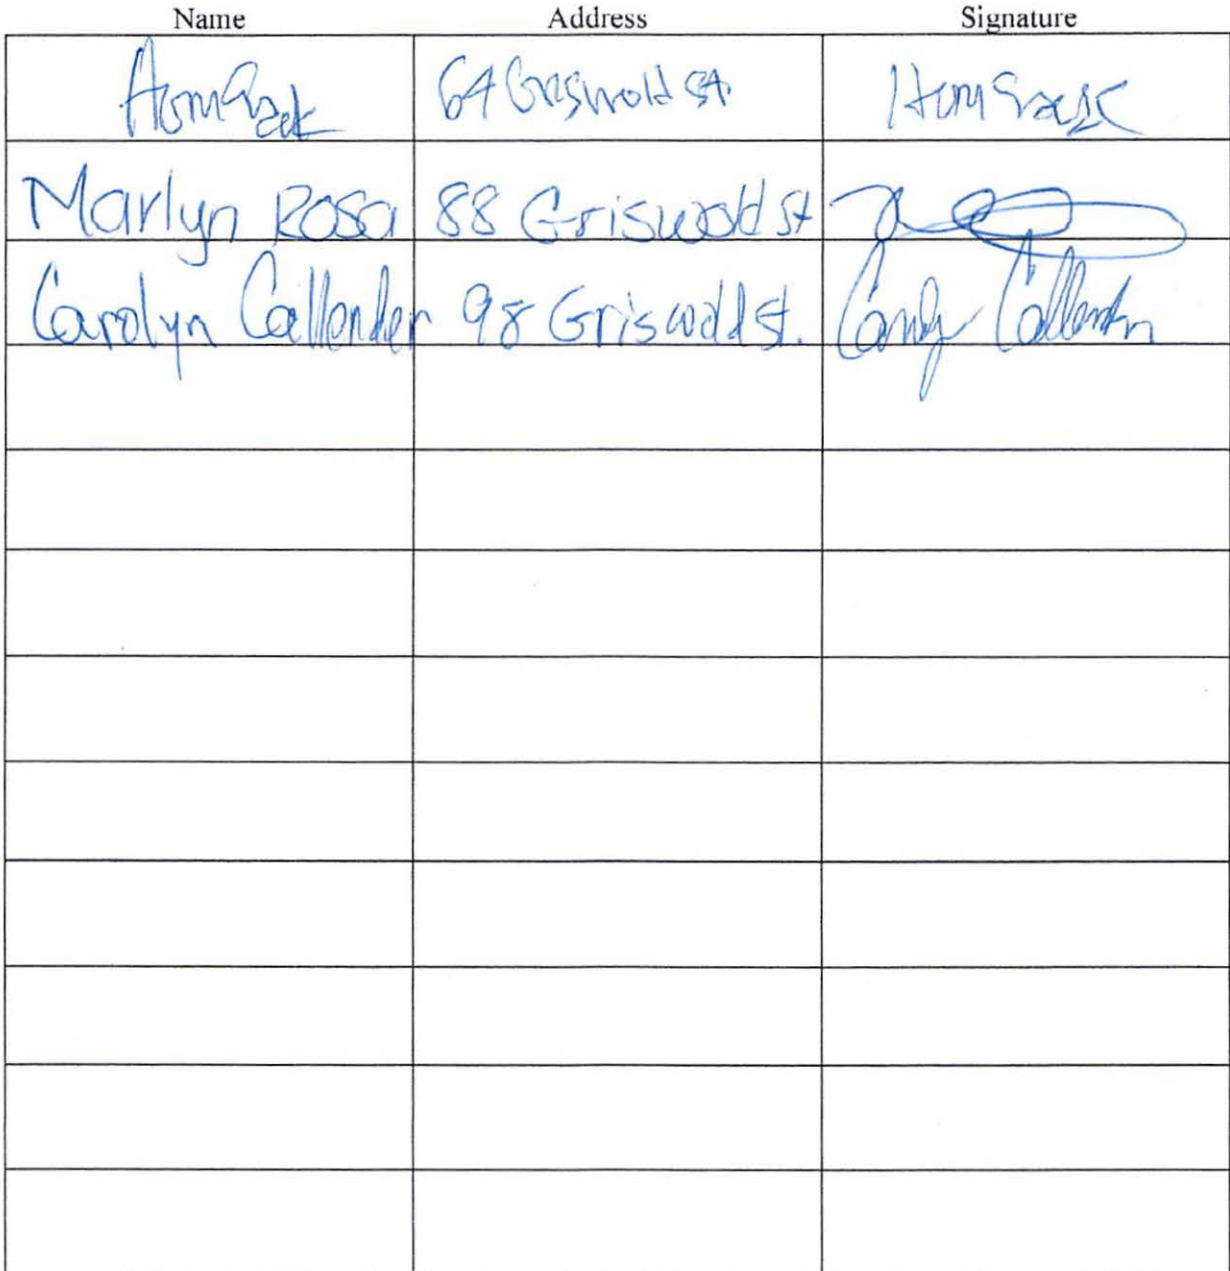 Name Address Signature
64 Griswold st
Marlyn Rosa 88 Griswold st
Carolyn Callender 98 Griswold st. Callender